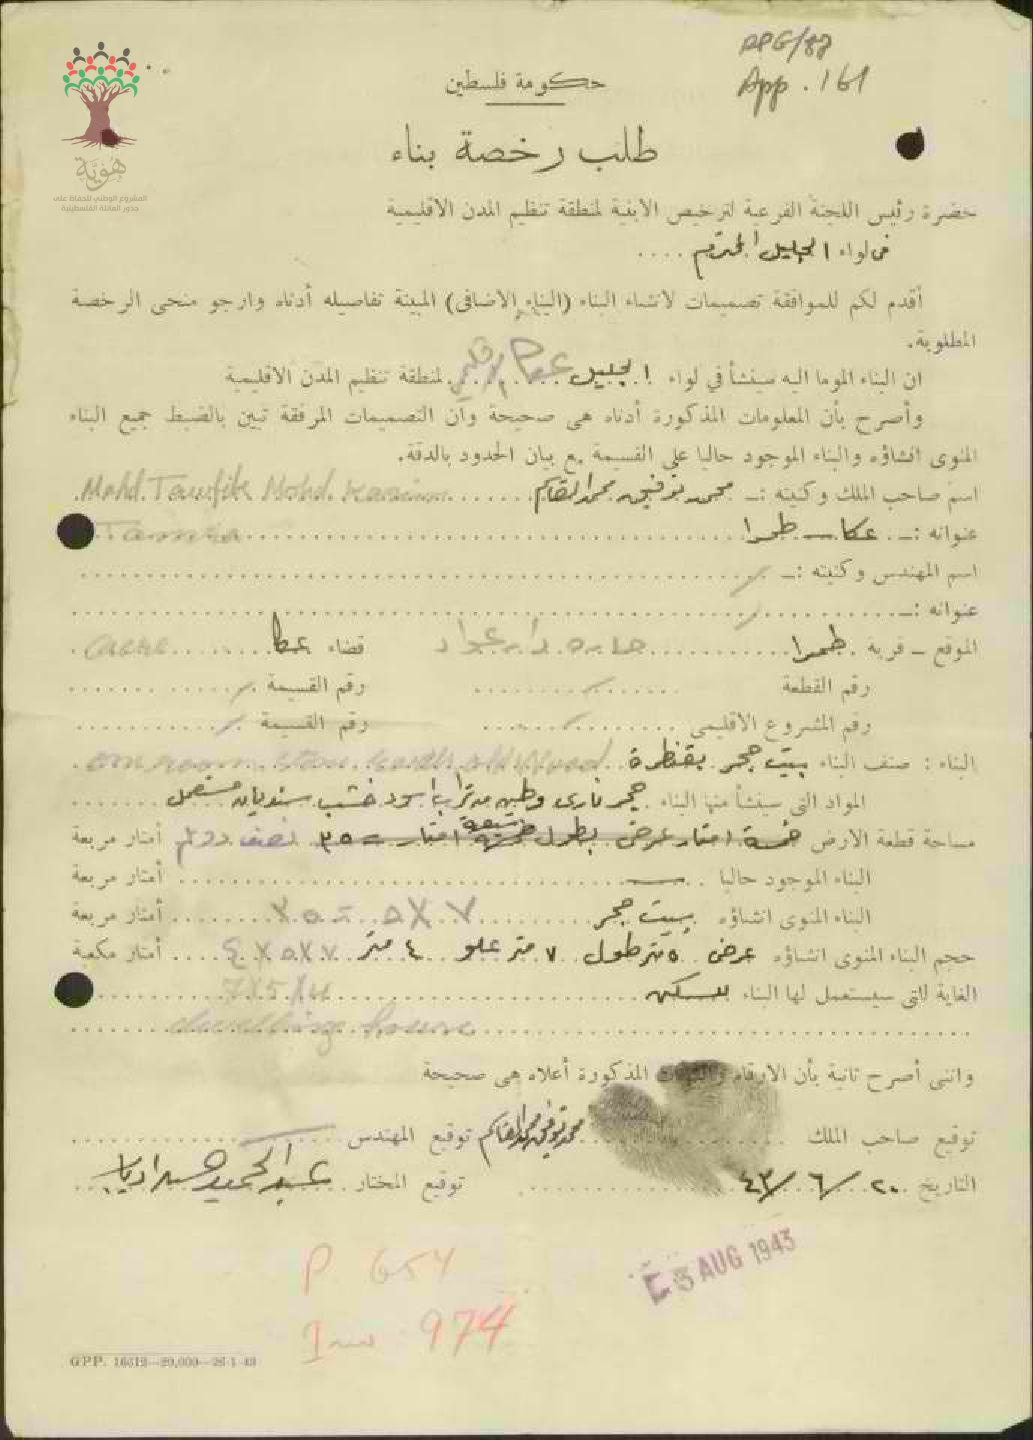 RPG/87
App. 161
حكومة فلسطين
هُوِيَّة
المشروع الوطني للحفاظ على
جذور العائلة الفلسطينية
طلب رخصة بناء
حضرة رئيس اللجنة الفرعية لترخيص الابنية لمنطقة تنظيم المدن الاقليمية
في لواء الجليل المحترم ....
أقدم لكم للموافقة تصميمات لانشاء البناء (البناء الاضافى) المبينة تفاصيله أدناه وارجو منحى الرخصة
المطلوبة.
ان البناء الموما اليه سينشأ في لواء الجليل عكا لمنطقة تنظيم المدن الاقليمية
وأصرح بأن المعلومات المذكورة أدناه هى صحيحة وان التصميمات المرفقة تبين بالضبط جميع البناء
المنوى انشاؤه والبناء الموجود حاليا على القسيمة مع بيان الحدود بالدقة.
اسم صاحب الملك وكنيته :ـ محمد توفيق محمد القاسم Mohd. Tawfik Mohd. Kassim
عنوانه :ـ عكا ـ طمرا Tamra
اسم المهندس وكنيته :ـ /
عنوانه :ـ /
الموقع ـ قرية طمرا حارة دار عواد قضاء عكا Acre
رقم القطعة / رقم القسيمة /
رقم المشروع الاقليمى / رقم القسيمة /
البناء : صنف البناء بيت حجر بقنطرة one room stone with old wood
المواد التى سينشأ منها البناء حجر نارى وطين من تراب اسود خشب سنديان مستعمل
مساحة قطعة الارض خمسة امتار عرض بطول سبعة امتار = ٣٥ نصف دونم أمتار مربعة
البناء الموجود حاليا — أمتار مربعة
البناء المنوى انشاؤه بيت حجر ٧ X ٥ = ٣٥ أمتار مربعة
حجم البناء المنوى انشاؤه عرض ٥ متر طول ٧ متر علو ٤ متر ٧ X ٥ X ٤ أمتار مكعبة
الغاية التى سيستعمل لها البناء للسكن 7X5X4
dwelling house
واننى أصرح ثانية بأن الارقام المذكورة أعلاه هى صحيحة
توقيع صاحب الملك محمد توفيق محمد القاسم توقيع المهندس
التاريخ ٢٠/٦/٤٣ توقيع المختار عبد الحميد
3 AUG 1943
P. 654
Inv. 974
GPP. 16612—20,000—26-1-43